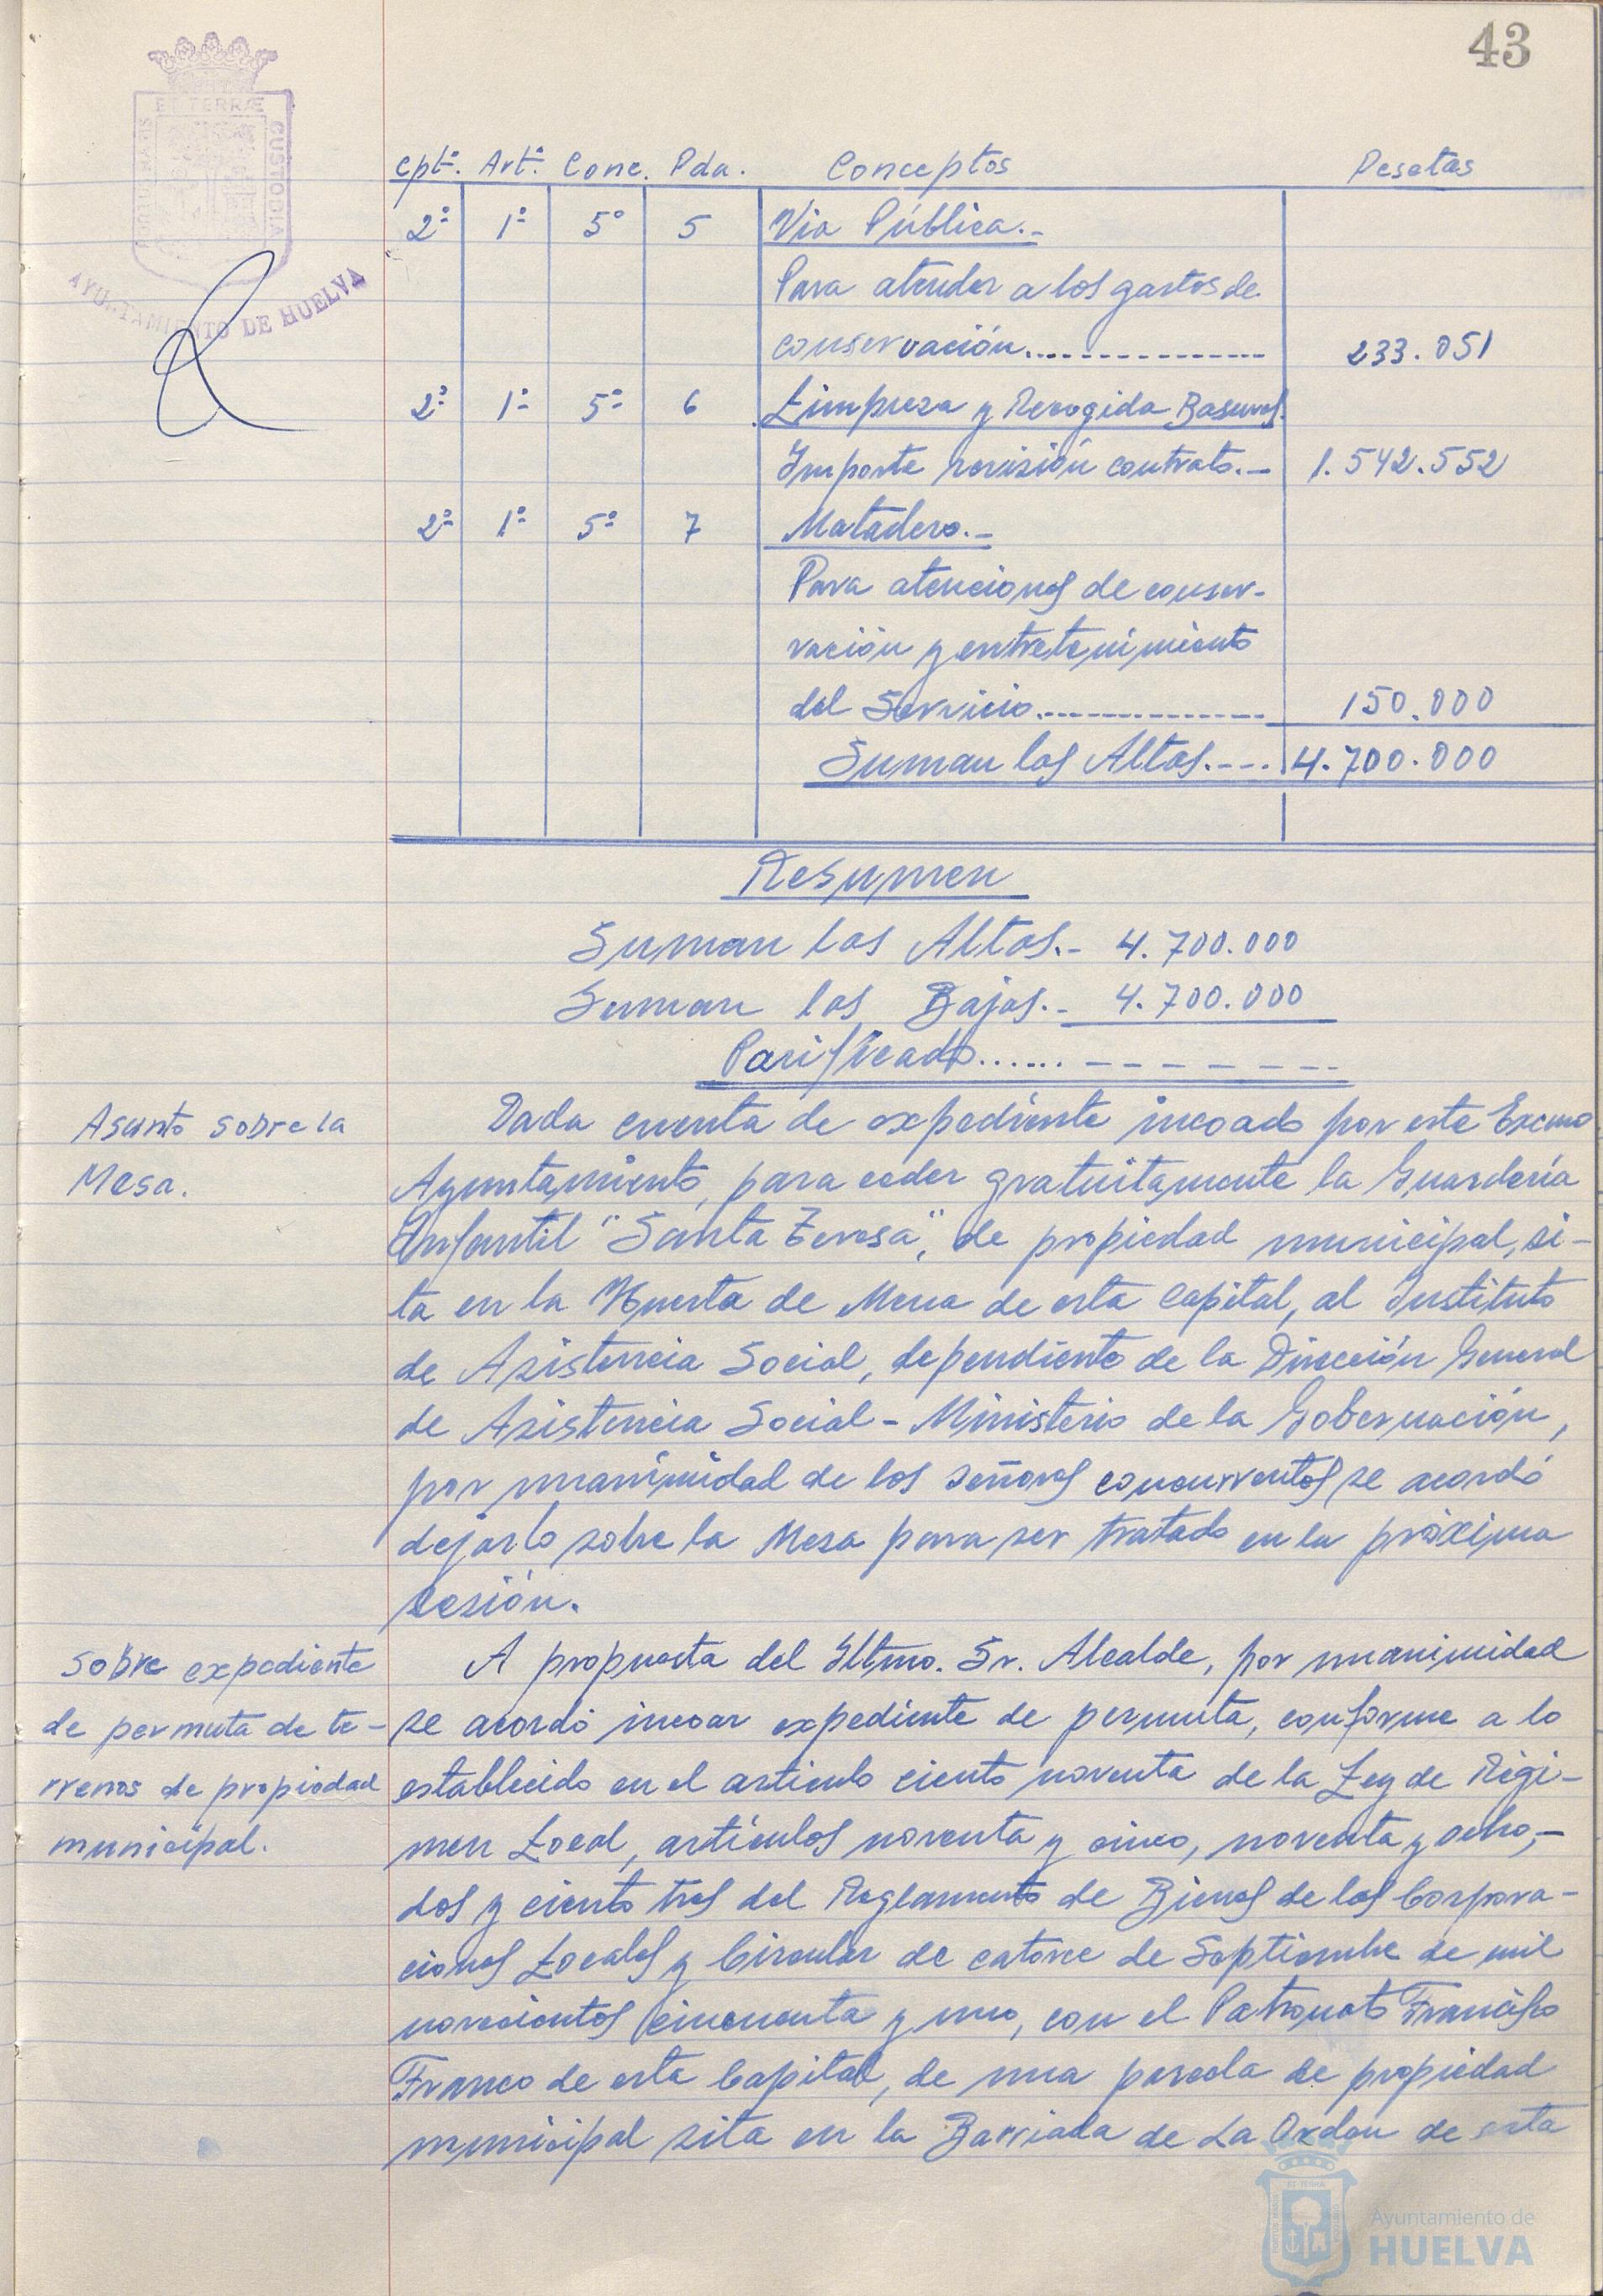 43
ET TERRÆ
CUSTODIA
AYUNTAMIENTO DE HUELVA
Cptº. Artº. Conc. Pda. Conceptos Pesetas
2º 1º 5º 5 Via Pública.-
Para atender a los gastos de
conservación 233.051
2º 1º 5º 6 Limpieza y Recogida Basuras.
Importe revisión contrato.- 1.542.552
2º 1º 5º 7 Matadero.-
Para atenciones de conser-
vación y entretenimiento
del Servicio 150.000
Suman las Altas.--- 4.700.000
Resumen
Suman las Altas.- 4.700.000
Suman las Bajas.- 4.700.000
Parificado...... - - - - - -
Asunto sobre la
Mesa.
Dada cuenta de expediente incoado por este Excmo
Ayuntamiento, para ceder gratuitamente la Guardería
Infantil "Santa Teresa", de propiedad municipal, si-
ta en la Huerta de Mena de esta Capital, al Instituto
de Asistencia Social, dependiente de la Dirección General
de Asistencia Social - Ministerio de la Gobernación,
por unanimidad de los señores concurrentes se acordó
dejarlo sobre la Mesa para ser tratado en la próxima
sesión.
Sobre expediente
de permuta de te-
rrenos de propiedad
municipal.
A propuesta del Iltmo. Sr. Alcalde, por unanimidad
se acordó incoar expediente de permuta, conforme a lo
establecido en el artículo ciento noventa de la Ley de Régi-
men Local, artículos noventa y cinco, noventa y ocho,-
dos y ciento tres del Reglamento de Bienes de las Corpora-
ciones Locales y Circular de catorce de Septiembre de mil
novecientos cincuenta y uno, con el Patronato Francisco
Franco de esta Capital, de una parcela de propiedad
municipal sita en la Barriada de La Orden de esta
Ayuntamiento de
HUELVA